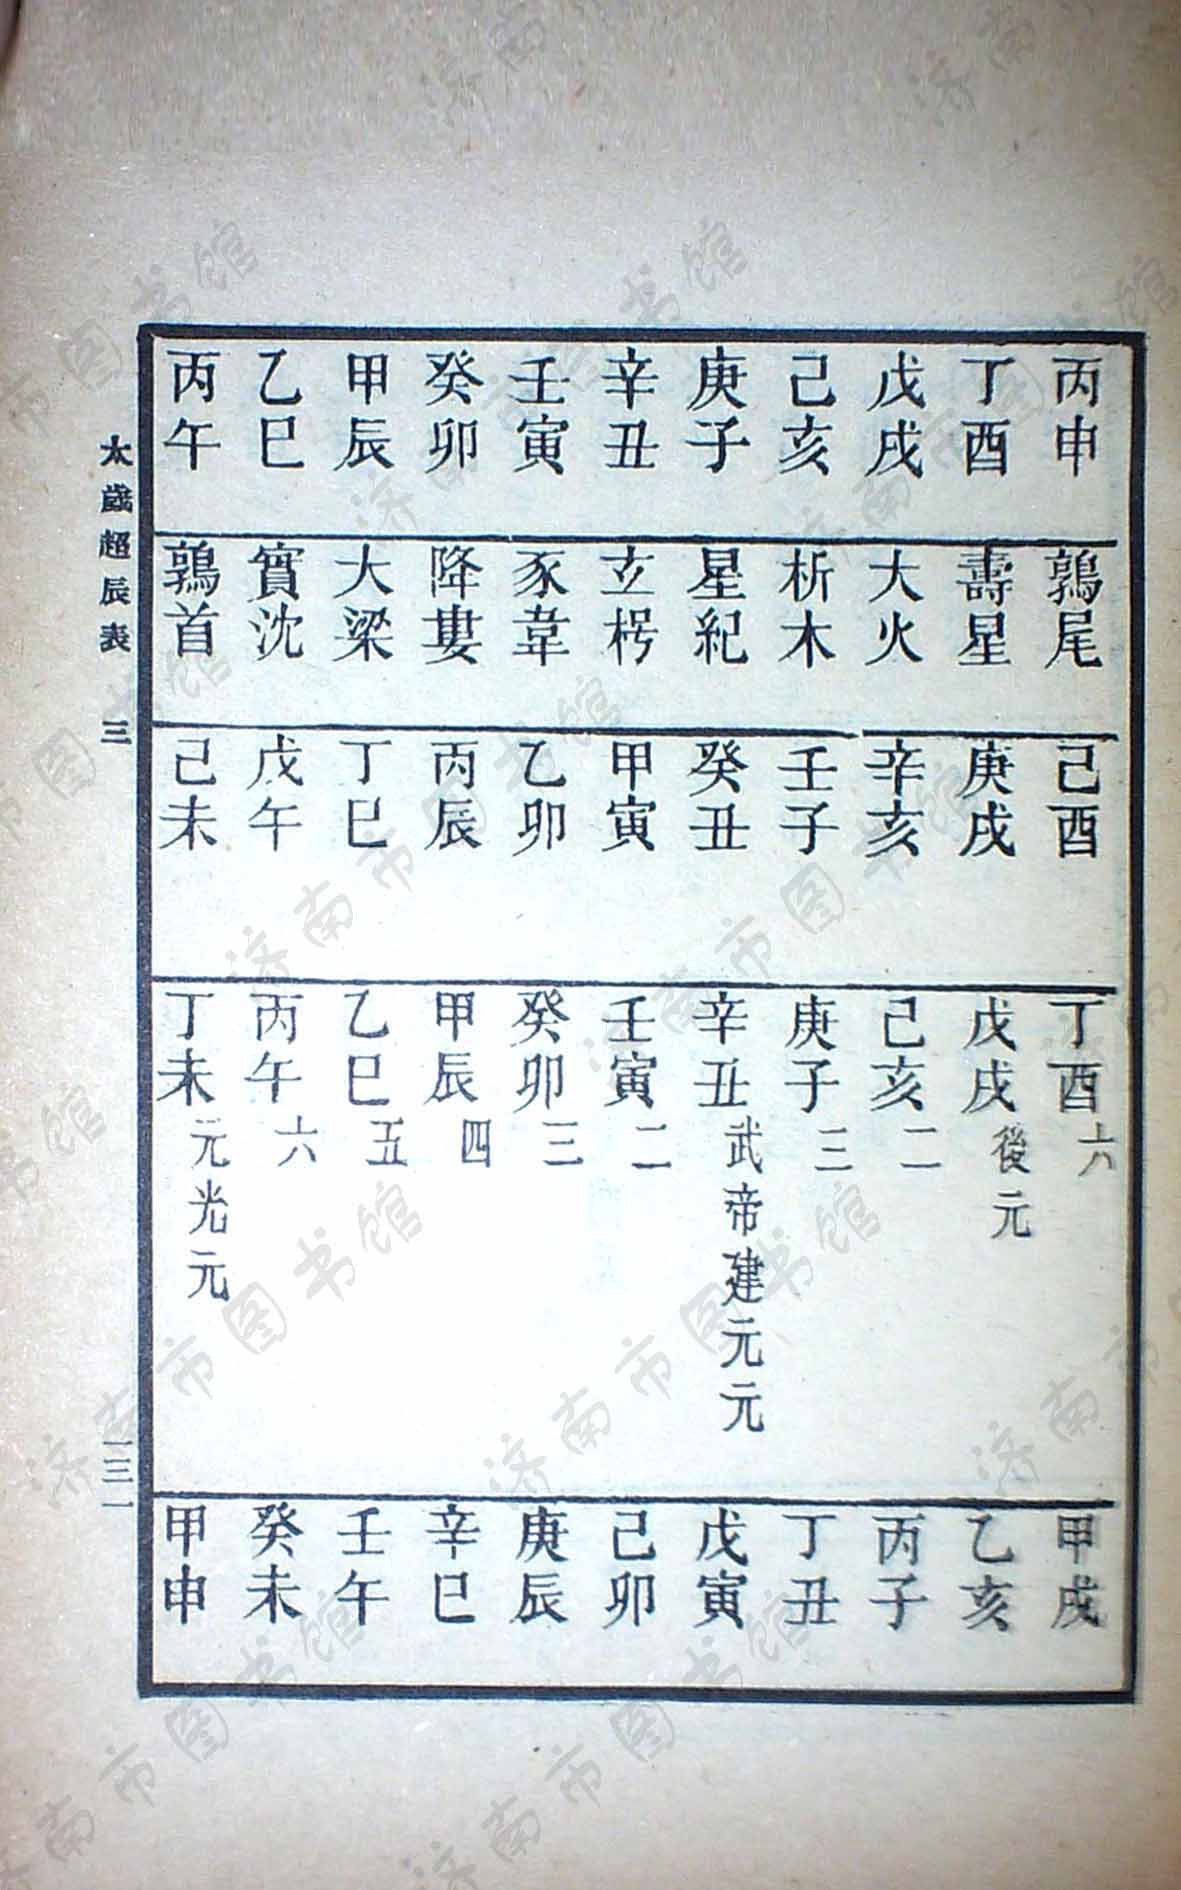 丙申 鶉尾 己酉 丁酉六 甲戌
丁酉 壽星 庚戌 戊戌後元 乙亥
戊戌 大火 辛亥 己亥二 丙子
己亥 析木 壬子 庚子三 丁丑
庚子 星紀 癸丑 辛丑武帝建元元 戊寅
辛丑 玄枵 甲寅 壬寅二 己卯
壬寅 豕韋 乙卯 癸卯三 庚辰
癸卯 降婁 丙辰 甲辰四 辛巳
甲辰 大梁 丁巳 乙巳五 壬午
乙巳 實沈 戊午 丙午六 癸未
丙午 鶉首 己未 丁未元光元 甲申
太歲超辰表 三 一三一
济南市图书馆